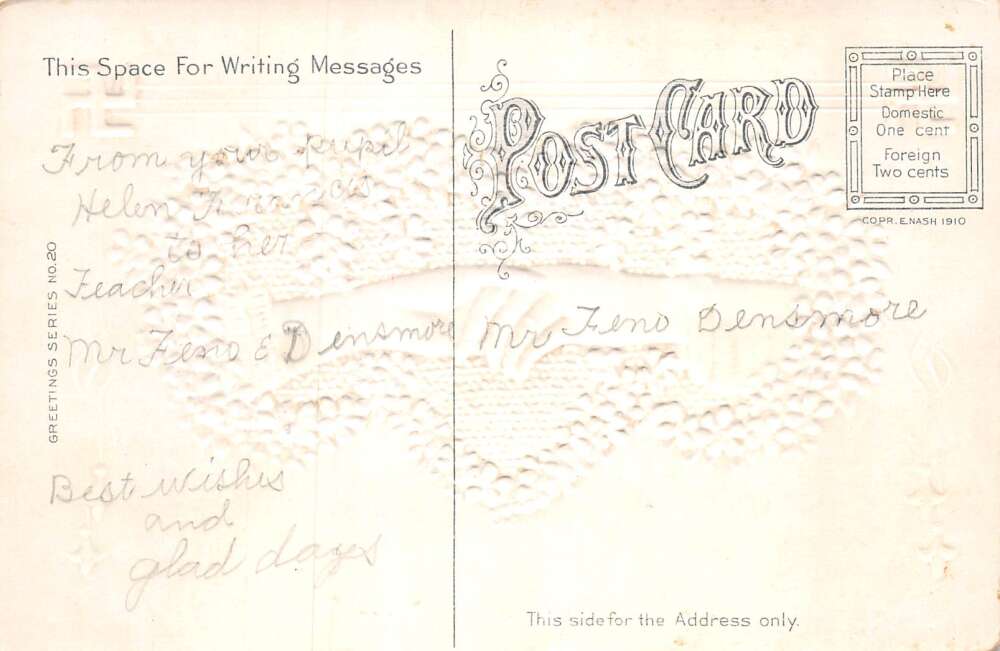 This Space For Writing Messages
From your pupil
Helen
to her
Teacher
Mr Feno E Densmore
Best wishes
and
glad dayes
GREETINGS SERIES NO.20
POST CARD
Mr Feno Densmore
This side for the Address only.
Place
Stamp Here
Domestic
One cent
Foreign
Two cents
COPR. E.NASH 1910